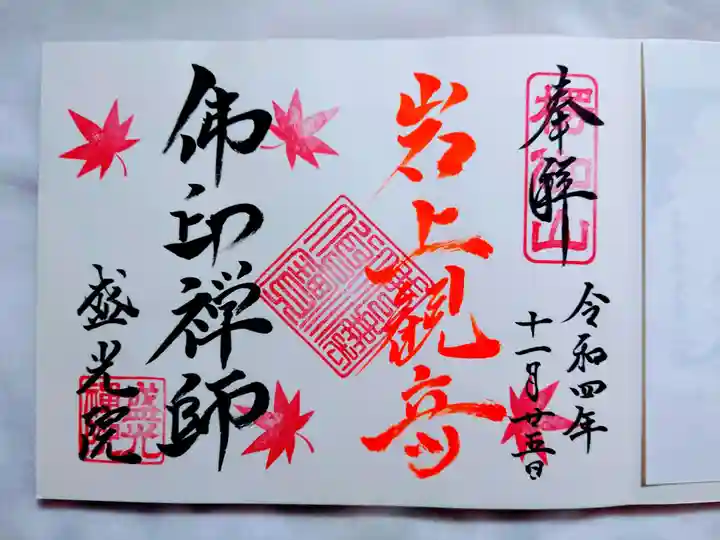 奉拜
令和四年
十一月廿五日
岩上觀音
佛印禅師
盛光院